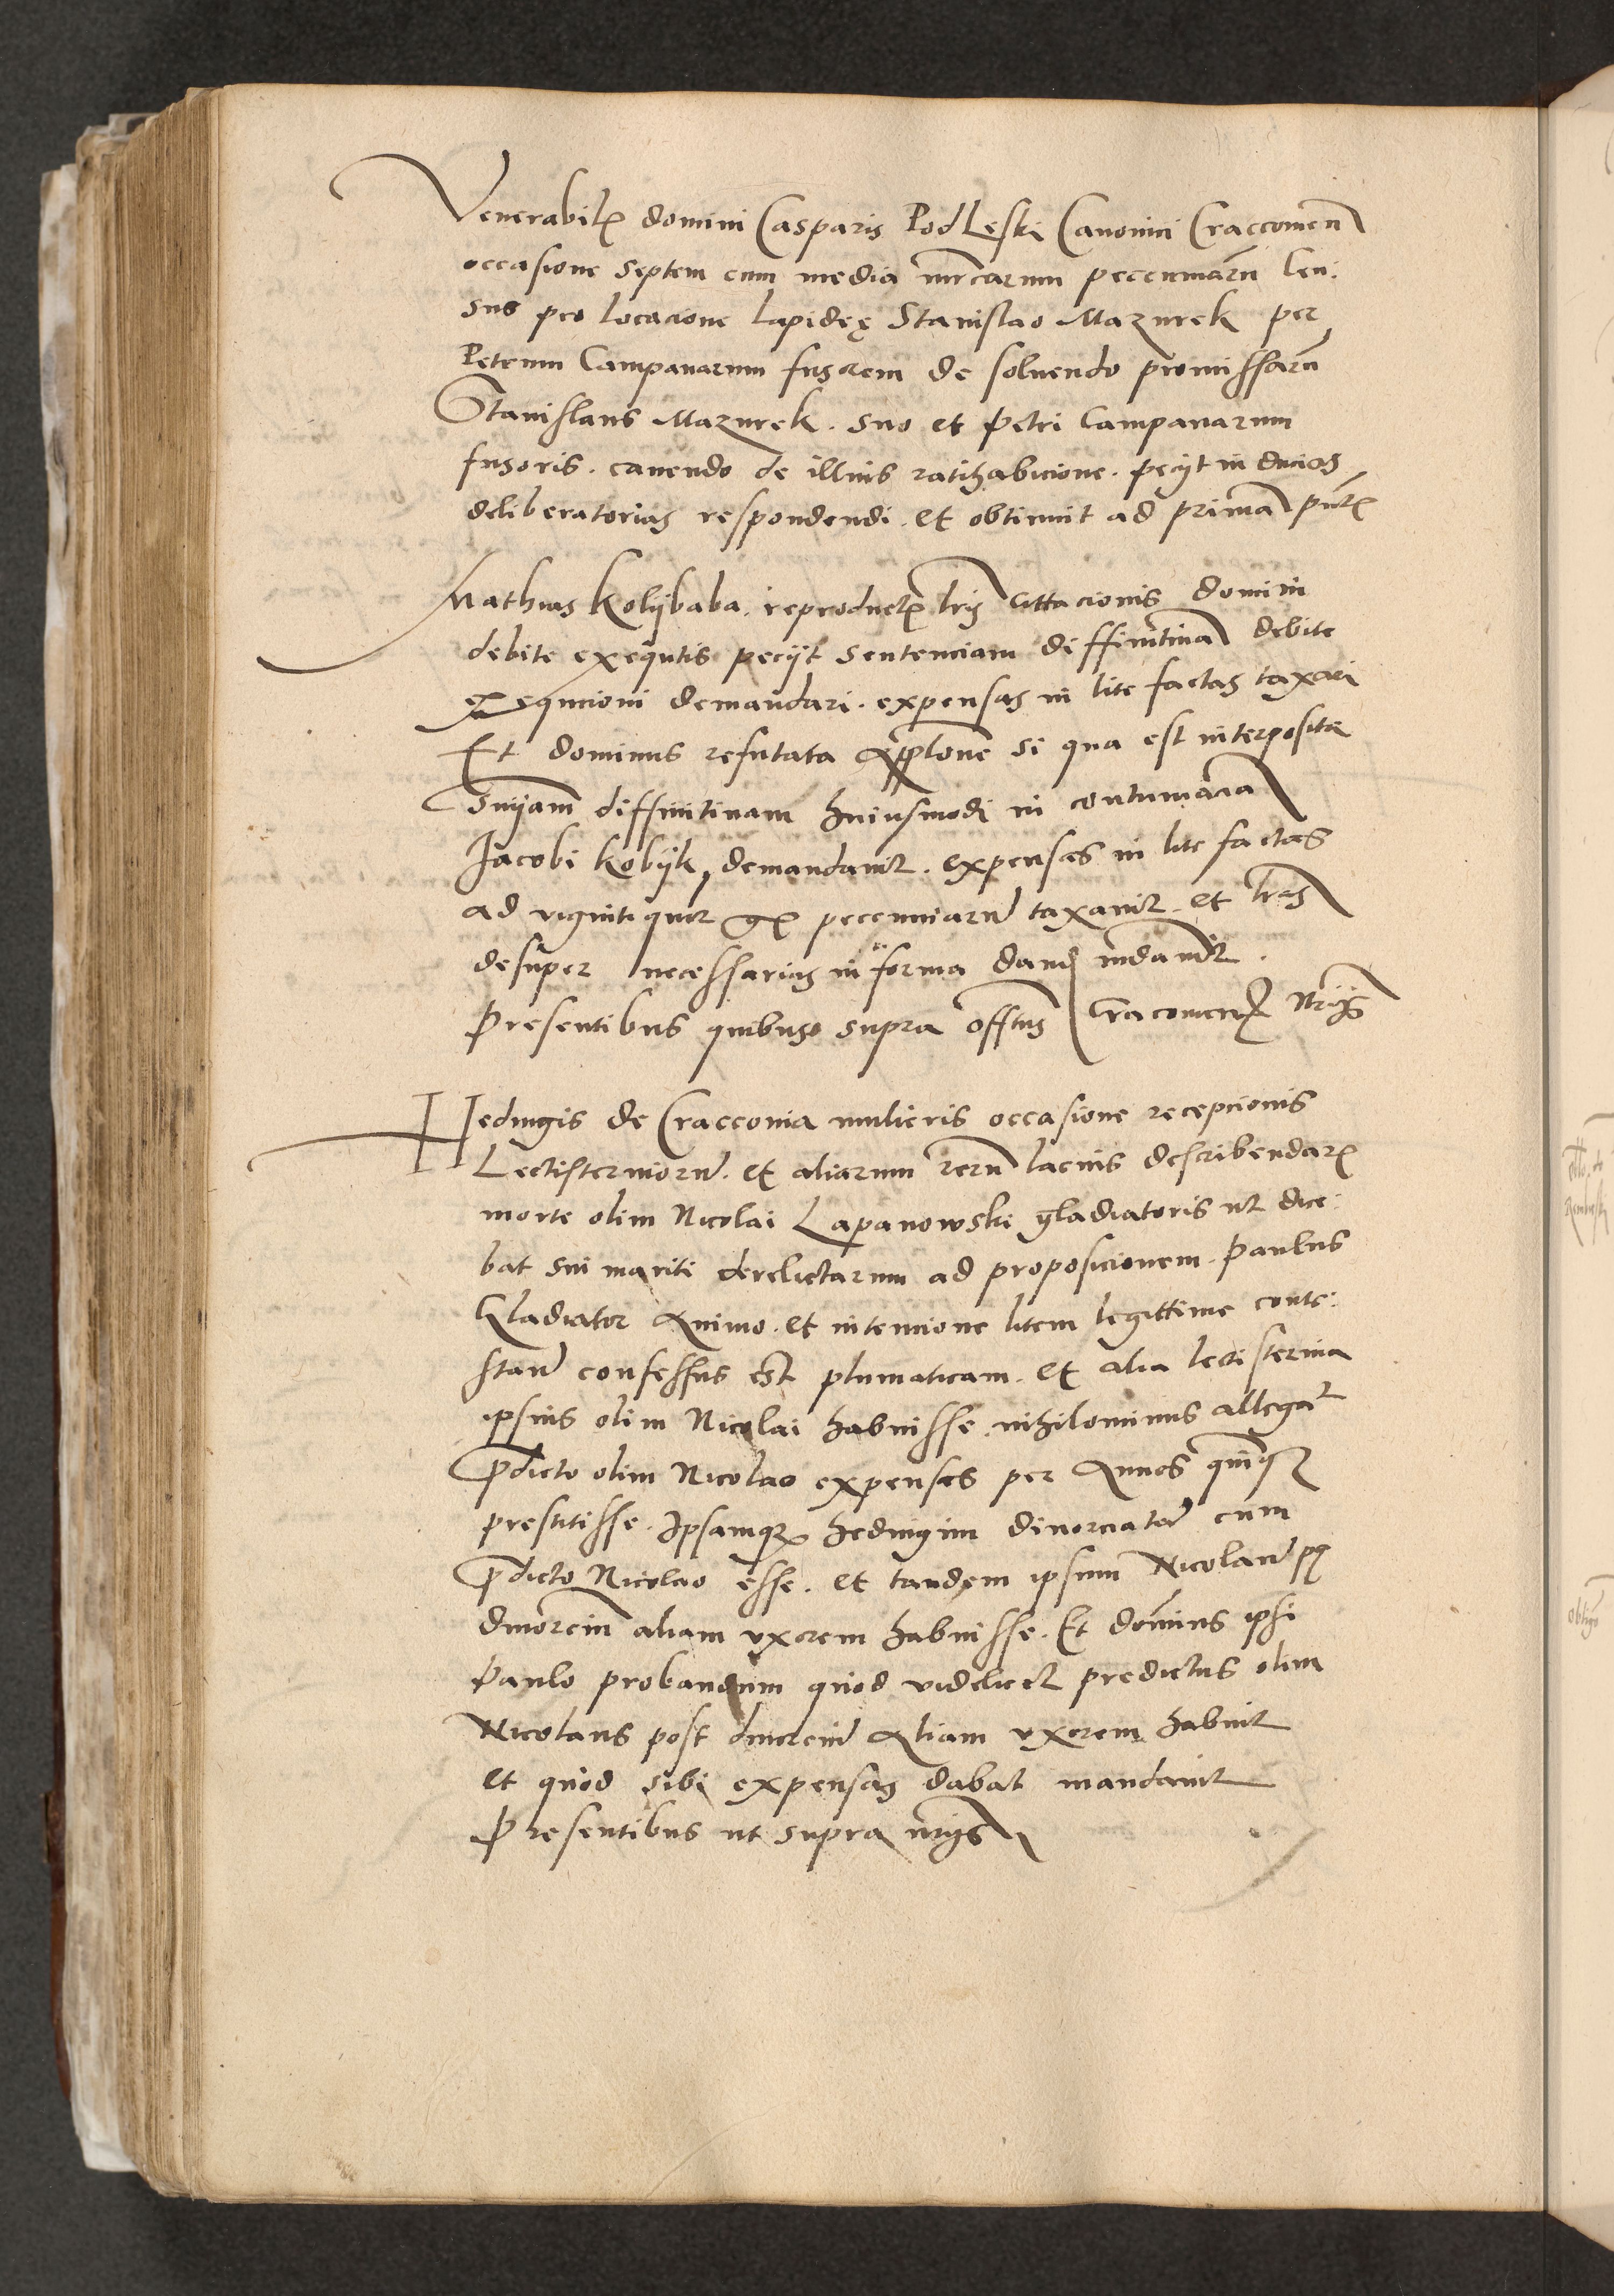 Venerabilis domini Casparis Podleski Canonici Craccouien
occasione septem cum media mrcarum peccuniarū Cen:
sus pro locacione lapideę Stanislao Mazurek per
Petrum Campanarum fusorem de soluendo promissarū
Stanislaus Mazurek. suo et Petri Campanarum
fusoris. cauendo de illius ratihabicione. pecijt inducias
deliberatorias respondendi. et obtinuit ad primā
Mathias Kolijbaba. reproductis lris Cittacionis domini
debite exequtis pecijt sentenciam diffinitiuā debite
exequcioni demandari. expensas in lite factas taxari
Et dominus refutata applone si qua est interposita
snijam diffinitiuam huiusmodi in contumacia
Jacobi Kobijk, demandauit. expensas in lite factas
ad viginti qtuor gr peccuniarū taxauit. et lras
desuper necessarias in forma dand mdauit.
Presentibus quibus supra offtus Cracouien Ntrijs
Hedwigis de Craccouia mulieris occasione recepcionis
Lectisterniorū. et aliarum rerū lacius describendarū
morte olim Nicolai Lapanowski gladiatoris ut dice:
bat sui mariti derelictarum ad proposicionem. Paulus
Gladiator Animo. et intencione litem legittime conte:
stan confessus est plumaticam. et alia lectisternia
ipsius olim Nicolai habuisse nihilominus allegat
Pdicto olim Nicolao expensas per Annos quinq3
prestitisse. Ipsamq3 hedwigim diuorciatā cum
Pdicto Nicolao esse. et tandem ipsum Nicolaū pt
diuorciū aliam vxorem habuisse. Et dominus ipsi
Paulo probandum quod videlicet predictus olim
Nicolaus post diuorciū Aliam vxorem habuit
et quod sibi expensas dabat mandauit
Presentibus ut supra ntrijs